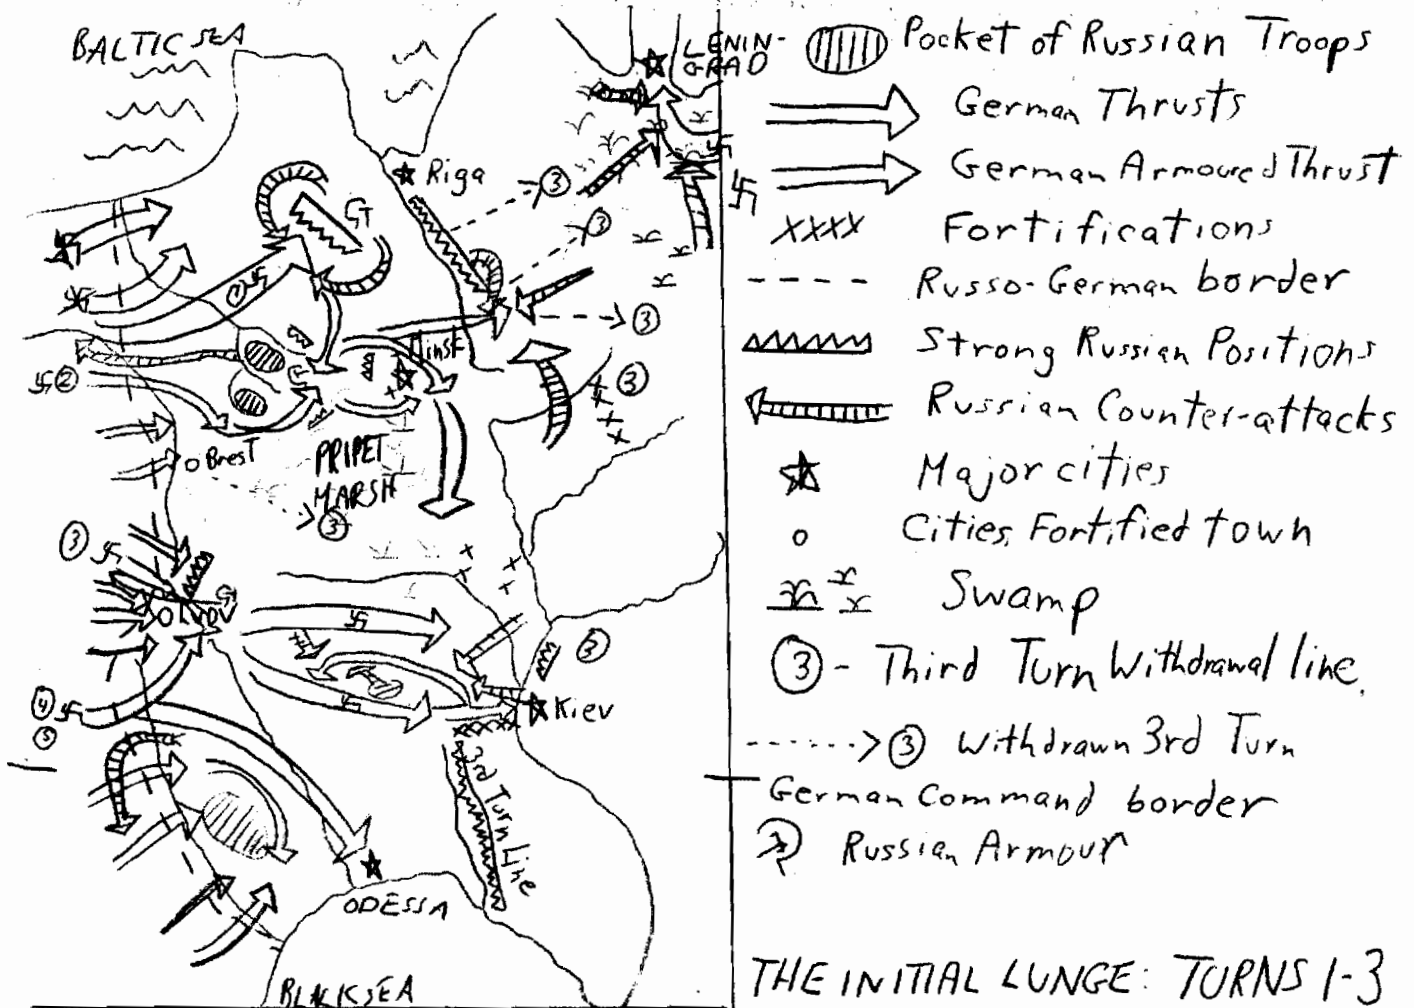 BALTIC SEA
LENIN-
GRAD
Riga
3
3
G
1
3
Minsk
2
3
Brest
PRIPET
MARSH
3
3
LVOV
3
4
5
Kiev
3rd Turn Line
ODESSA
BLACK SEA
Pocket of Russian Troops
German Thrusts
German Armoured Thrust
XXXX Fortifications
Russo-German border
Strong Russian Positions
Russian Counter-attacks
Major cities
Cities, Fortified town
Swamp
3 - Third Turn Withdrawal line.
3 Withdrawn 3rd Turn
German Command border
Russian Armour
THE INITIAL LUNGE: TURNS 1-3